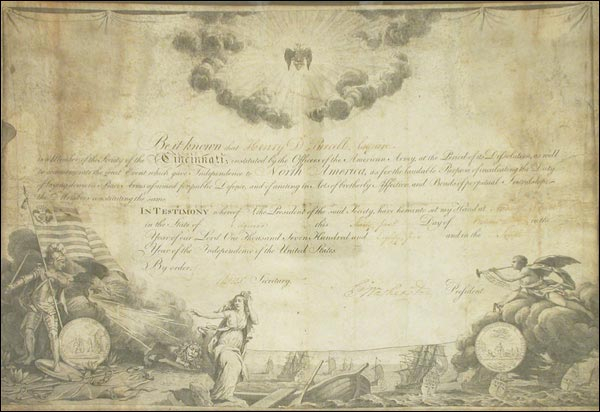 Be it known that Henry D. Purcell Esquire
is a Member of the Society of the Cincinnati; instituted by the Officers of the American Army, at the Period of its Dissolution, as well
to commemorate the great Event which gave Independence to North America, as for the laudable Purpose of inculcating the Duty
of laying down in Peace Arms assumed for public Defence, and of uniting in Acts of brotherly Affection, and Bonds of perpetual Friendship
the Members constituting the same.
In Testimony whereof I, the President of the said Society, have hereunto set my Hand at Mount
in the State of this Day of in the
Year of our Lord One Thousand Seven Hundred and Eighty and in the
Year of the Independence of the United States.
By order,
Secretary. G. Washington President.